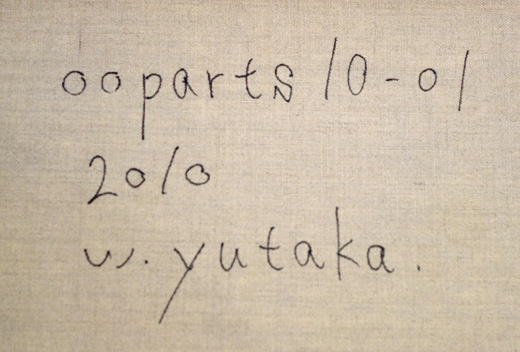 ooparts 10-01
2010
w. yutaka.